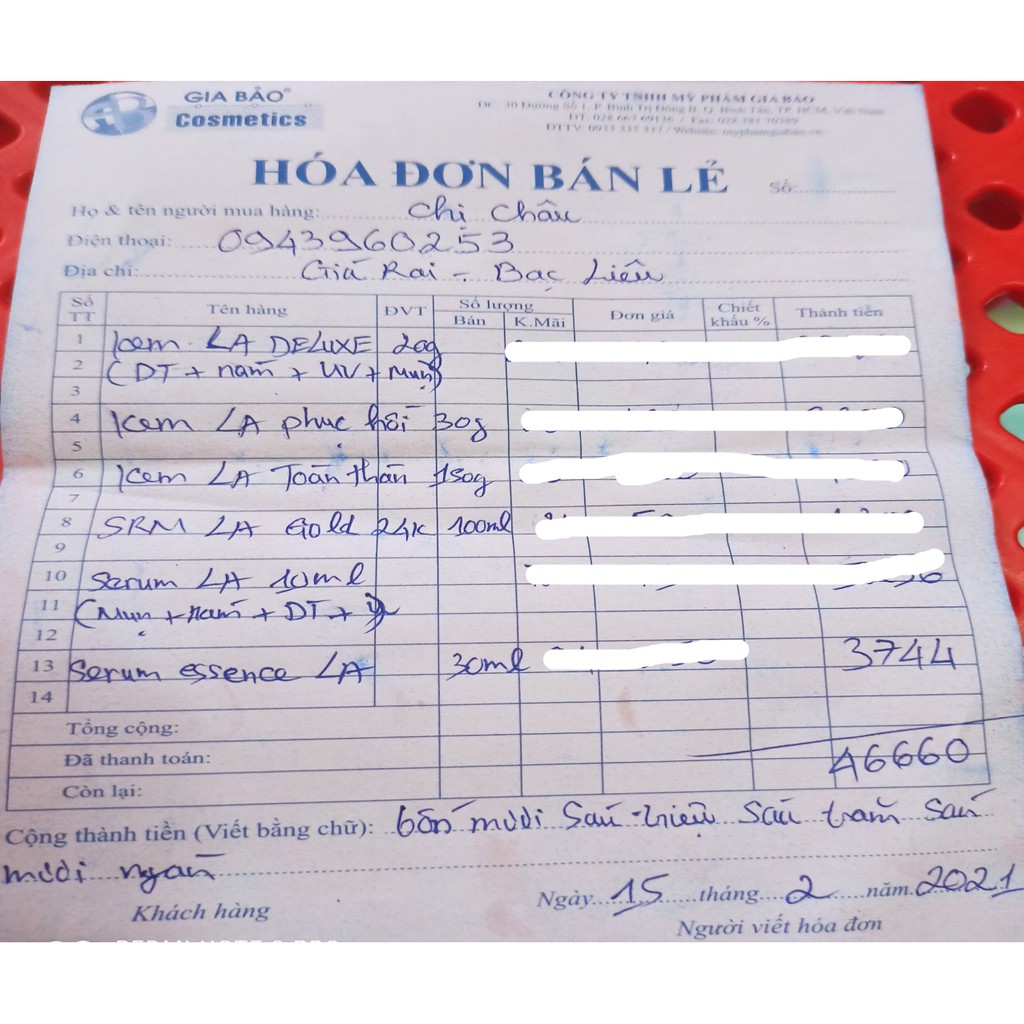 GIA BẢO®
Cosmetics
CÔNG TY TNHH MỸ PHẨM GIA BẢO
ĐC: 30 Đường Số 1, P. Bình Trị Đông B, Q. Bình Tân, TP. HCM, Việt Nam
ĐT: 028 667 69136 / Fax: 028
ĐTTV: 0933 335 337 / Website: myphamgiabao.vn
HÓA ĐƠN BÁN LẺ Số:
Họ & tên người mua hàng: Chị Châu
Điện thoại: 0943960253
Địa chỉ: Giá Rai - Bạc Liêu
Số TT Tên hàng ĐVT Số lượng Bán K.Mãi Đơn giá Chiết khấu % Thành tiền
1 Kem LA DELUXE 20g
2 (DT + nám + UV + Mụn)
3
4 Kem LA phục hồi 30g
5
6 Kem LA Toàn thân 150g
7
8 SRM LA Gold 24K 100ml
9
10 Serum LA 10ml
11 (Mụn + nám + DT +
12
13 Serum essence LA 30ml 3744
14
Tổng cộng:
Đã thanh toán: 46660
Còn lại:
Cộng thành tiền (Viết bằng chữ): bốn mươi sáu triệu sáu trăm sáu
mươi ngàn
Ngày 15 tháng 2 năm 2021
Khách hàng Người viết hóa đơn